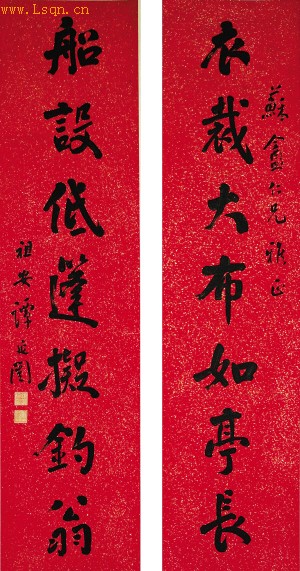 www.Lsqn.cn
蘇盦仁兄雅正
衣裁大布如亭長
船設低篷擬釣翁
祖安譚延闓